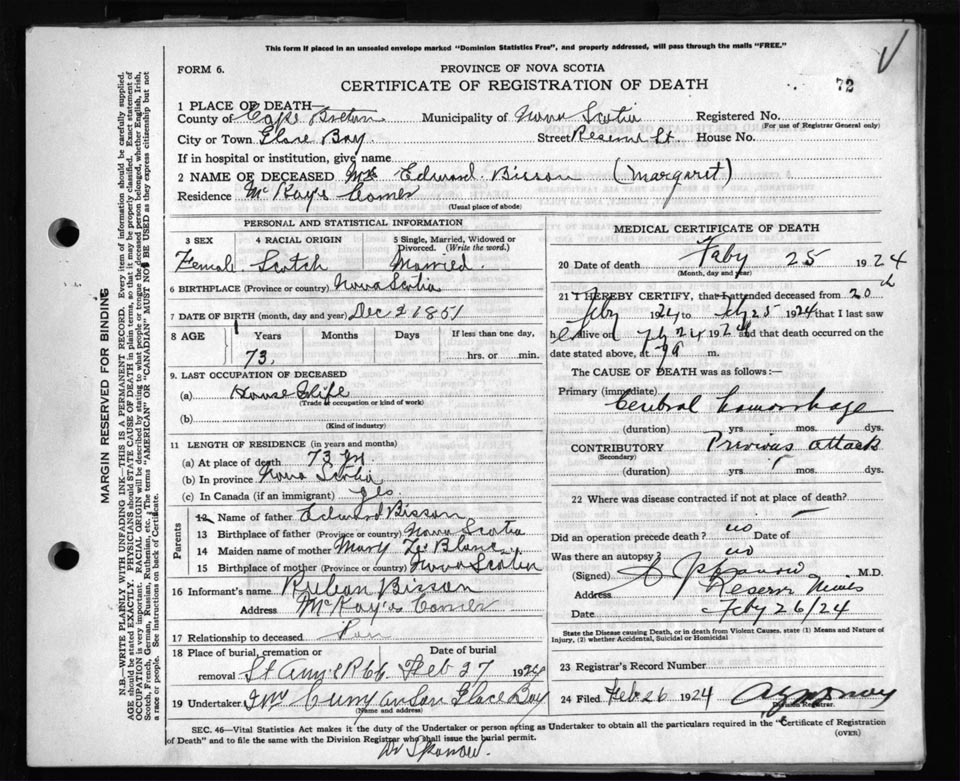 This form if placed in an unsealed envelope marked "Dominion Statistics Free", and properly addressed, will pass through the mails "FREE."
FORM 6.
PROVINCE OF NOVA SCOTIA
CERTIFICATE OF REGISTRATION OF DEATH
72
1 PLACE OF DEATH—
County of Cape Breton Municipality of Nova Scotia Registered No.
(For use of Registrar General only)
City or Town Glace Bay Street Reserve St. House No.
If in hospital or institution, give name
2 NAME OF DECEASED Mrs Edward Bisson (Margaret)
Residence McKays Corner
(Usual place of abode)
PERSONAL AND STATISTICAL INFORMATION
3 SEX 4 RACIAL ORIGIN 5 Single, Married, Widowed or Divorced. (Write the word.)
Female Scotch Married.
6 BIRTHPLACE (Province or country) Nova Scotia
7 DATE OF BIRTH (month, day and year) Dec 1851
8 AGE Years Months Days If less than one day,
73. hrs. or min.
9. LAST OCCUPATION OF DECEASED
(a) House Wife
(Trade or occupation or kind of work)
(b)
(Kind of industry)
11 LENGTH OF RESIDENCE (in years and months)
(a) At place of death 73 yr
(b) In province Nova Scotia
(c) In Canada (if an immigrant) yes
Parents
12 Name of father Edward Bisson
13 Birthplace of father (Province or country) Nova Scotia
14 Maiden name of mother Mary Le Blanc
15 Birthplace of mother (Province or country) Nova Scotia
16 Informant's name Ruban Bisson
Address McKay's Corner
17 Relationship to deceased Son
18 Place of burial, cremation or removal Date of burial
St Feb 27 1924
19 Undertaker Curry and Son Glace Bay
(Name and address)
MEDICAL CERTIFICATE OF DEATH
20 Date of death Feby 25 1924
(Month, day and year)
21 I HEREBY CERTIFY, that I attended deceased from 20th
Feby 1924 to Feby 25 1924 that I last saw
h alive on Feby 24 1924 and that death occurred on
date stated above, at m.
The CAUSE OF DEATH was as follows:—
Primary (immediate) Cerebral hemorrhage
(duration) yrs. mos. dys.
CONTRIBUTORY Previous attack
(Secondary)
(duration) yrs. mos. dys.
22 Where was disease contracted if not at place of death?
Did an operation precede death? no Date of
Was there an autopsy? no
(Signed) M.D.
Address Reserve Mines
Date Feby 26/24
State the Disease causing Death, or in death from Violent Causes, state (1) Means and Nature of Injury, (2) whether Accidental, Suicidal or Homicidal
23 Registrar's Record Number
24 Filed Feb 26 1924
Division Registrar.
SEC. 46—Vital Statistics Act makes it the duty of the Undertaker or person acting as Undertaker to obtain all the particulars required in the "Certificate of Registration of Death" and to file the same with the Division Registrar who shall issue the burial permit.
(OVER)
Dr
MARGIN RESERVED FOR BINDING
N.B.—WRITE PLAINLY WITH UNFADING INK—THIS IS A PERMANENT RECORD. Every item of information should be carefully supplied.
AGE should be stated EXACTLY. PHYSICIANS should STATE CAUSE OF DEATH in plain terms, so that it may be properly classified. Exact statement of
OCCUPATION is very important. RACIAL ORIGIN will be described by stating to what people or tongue the deceased person belonged, whether English, Irish,
Scotch, French, German, Russian, Ruthenian, etc. The terms "AMERICAN" or "CANADIAN" MUST NOT BE USED as they express citizenship but not
a race or people. See instructions on back of Certificate.